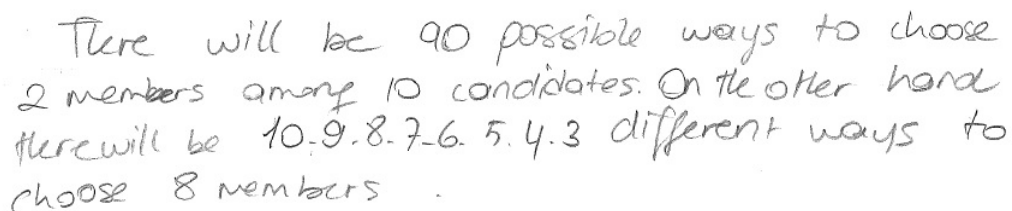 There will be 90 possible ways to choose
2 members among 10 candidates. On the other hand
there will be 10.9.8.7.6.5.4.3 different ways to
choose 8 members.